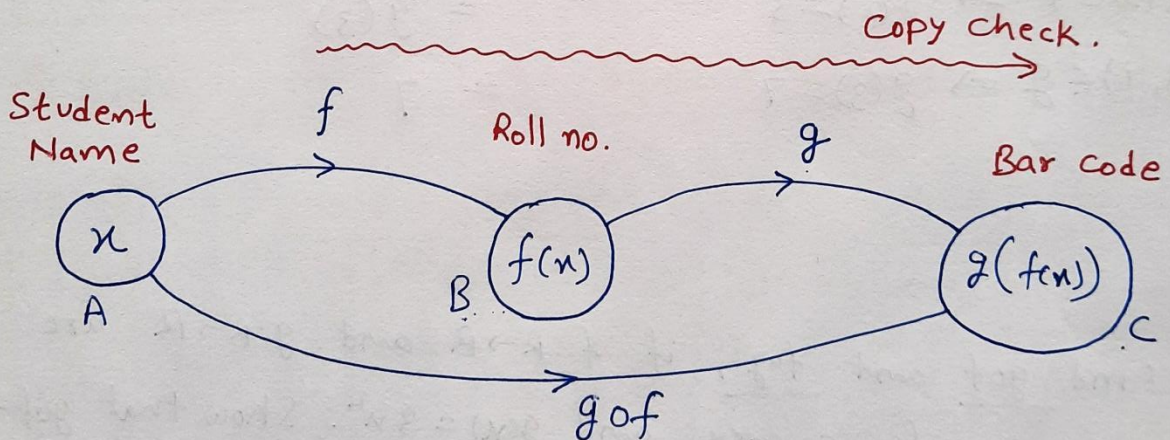 Copy Check.
Student
Name
f
Roll no.
g
Bar code
x
A
f(x)
B
g(f(x))
C
gof